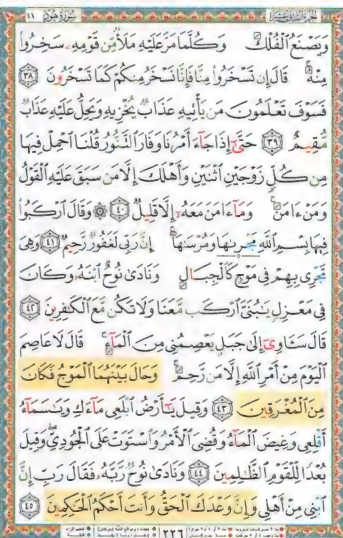 الجزء الثاني عشر ١١ سورة هود
وَيَصْنَعُ ٱلْفُلْكَ وَكُلَّمَا مَرَّ عَلَيْهِ مَلَأٌ مِّن قَوْمِهِۦ سَخِرُوا۟
مِنْهُ ۚ قَالَ إِن تَسْخَرُوا۟ مِنَّا فَإِنَّا نَسْخَرُ مِنكُمْ كَمَا تَسْخَرُونَ ٣٨
فَسَوْفَ تَعْلَمُونَ مَن يَأْتِيهِ عَذَابٌ يُخْزِيهِ وَيَحِلُّ عَلَيْهِ عَذَابٌ
مُّقِيمٌ ٣٩ حَتَّىٰٓ إِذَا جَآءَ أَمْرُنَا وَفَارَ ٱلتَّنُّورُ قُلْنَا ٱحْمِلْ فِيهَا
مِن كُلٍّ زَوْجَيْنِ ٱثْنَيْنِ وَأَهْلَكَ إِلَّا مَن سَبَقَ عَلَيْهِ ٱلْقَوْلُ
وَمَنْ ءَامَنَ ۚ وَمَآ ءَامَنَ مَعَهُۥٓ إِلَّا قَلِيلٌ ٤٠ ۞ وَقَالَ ٱرْكَبُوا۟
فِيهَا بِسْمِ ٱللَّهِ مَجْر۪ىٰهَا وَمُرْسَىٰهَآ ۚ إِنَّ رَبِّى لَغَفُورٌ رَّحِيمٌ ٤١ وَهِىَ
تَجْرِى بِهِمْ فِى مَوْجٍ كَٱلْجِبَالِ وَنَادَىٰ نُوحٌ ٱبْنَهُۥ وَكَانَ
فِى مَعْزِلٍ يَٰبُنَىَّ ٱرْكَب مَّعَنَا وَلَا تَكُن مَّعَ ٱلْكَٰفِرِينَ ٤٢
قَالَ سَـَٔاوِىٓ إِلَىٰ جَبَلٍ يَعْصِمُنِى مِنَ ٱلْمَآءِ ۚ قَالَ لَا عَاصِمَ
ٱلْيَوْمَ مِنْ أَمْرِ ٱللَّهِ إِلَّا مَن رَّحِمَ ۚ وَحَالَ بَيْنَهُمَا ٱلْمَوْجُ فَكَانَ
مِنَ ٱلْمُغْرَقِينَ ٤٣ وَقِيلَ يَٰٓأَرْضُ ٱبْلَعِى مَآءَكِ وَيَٰسَمَآءُ
أَقْلِعِى وَغِيضَ ٱلْمَآءُ وَقُضِىَ ٱلْأَمْرُ وَٱسْتَوَتْ عَلَى ٱلْجُودِىِّ ۖ وَقِيلَ
بُعْدًا لِّلْقَوْمِ ٱلظَّٰلِمِينَ ٤٤ وَنَادَىٰ نُوحٌ رَّبَّهُۥ فَقَالَ رَبِّ إِنَّ
ٱبْنِى مِنْ أَهْلِى وَإِنَّ وَعْدَكَ ٱلْحَقُّ وَأَنتَ أَحْكَمُ ٱلْحَٰكِمِينَ ٤٥
٢٢٦